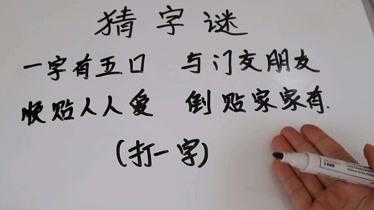 猜字谜
一字有五口 与门交朋友
快贴人人爱 倒贴家家有.
(打一字)